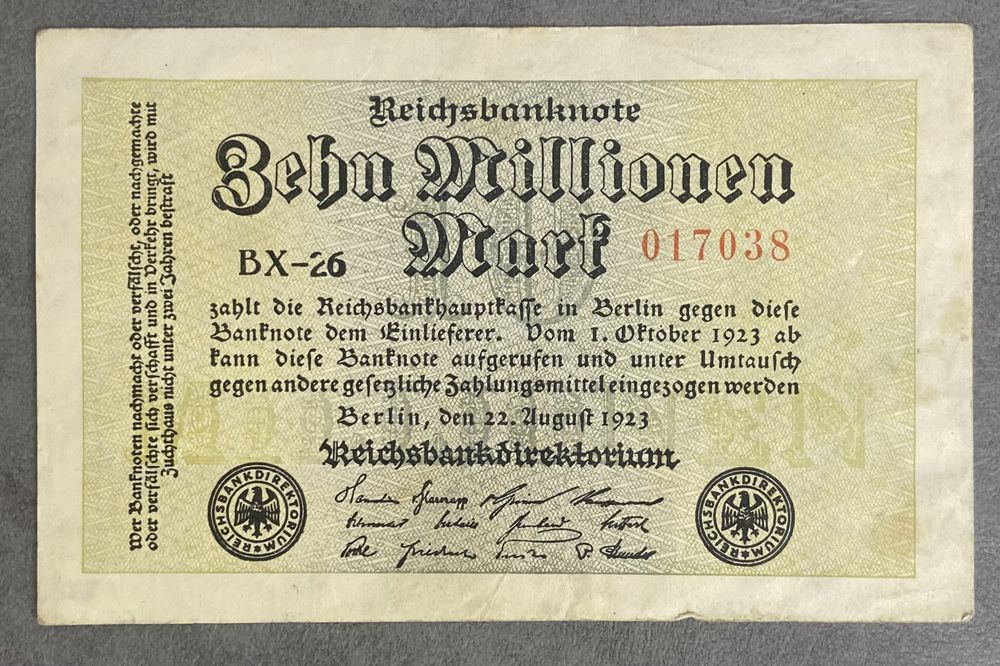 Reichsbanknote
Zehn Millionen
Mark
BX-26
017038
zahlt die Reichsbankhauptkasse in Berlin gegen diese
Banknote dem Einlieferer. Vom 1. Oktober 1923 ab
kann diese Banknote aufgerufen und unter Umtausch
gegen andere gesetzliche Zahlungsmittel eingezogen werden
Berlin, den 22. August 1923
Reichsbankdirektorium
REICHSBANKDIREKTORIUM
REICHSBANKDIREKTORIUM
Wer Banknoten nachmacht oder verfälscht, oder nachgemachte
oder verfälschte sich verschafft und in Verkehr bringt, wird mit
Zuchthaus nicht unter zwei Jahren bestraft